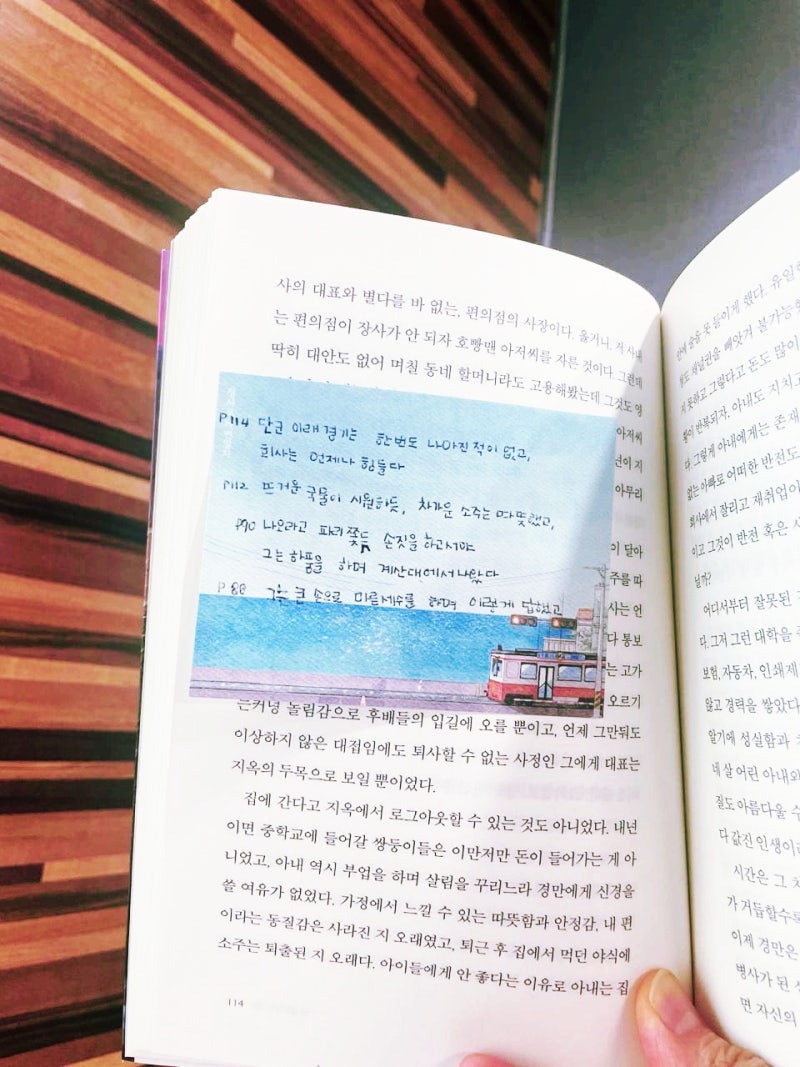 사의 대표와 별다를 바 없는, 편의점의 사장이다. 울거니, 저 사내
는 편의점이 장사가 안 되자 호빵맨 아저씨를 자른 것이다. 그런데
딱히 대안도 없어 며칠 동네 할머니라도 고용해봤는데 그것도 영
아저씨
면이 지
아무리
이 달아
주를 따
사는 언
다 통보
는 고가
오르기
P114 단군 이래 경기는 한번도 나아진 적이 없고,
회사는 언제나 힘들다
P112 뜨거운 국물이 시원하듯, 차가운 소주는 따뜻했고,
P90 나온라고 파리 쫓듯 손짓을 하고서야
그는 하품을 하며 계산대에서 나왔다
P88 그는 큰 손으로 마른세수를 하며 이렇게 답했고
는커녕 놀림감으로 후배들의 입길에 오를 뿐이고, 언제 그만둬도
이상하지 않은 대접임에도 퇴사할 수 없는 사정인 그에게 대표는
지옥의 두목으로 보일 뿐이었다.
집에 간다고 지옥에서 로그아웃할 수 있는 것도 아니었다. 내년
이면 중학교에 들어갈 쌍둥이들은 이만저만 돈이 들어가는 게 아
니었고, 아내 역시 부업을 하며 살림을 꾸리느라 경만에게 신경을
쓸 여유가 없었다. 가정에서 느낄 수 있는 따뜻함과 안정감, 내 편
이라는 동질감은 사라진 지 오래였고, 퇴근 후 집에서 먹던 야식에
소주는 퇴출된 지 오래다. 아이들에게 안 좋다는 이유로 아내는 집
114
안에 술을 못 들이게 했다. 유일한
채널권을 빼앗겨 불가능
지 못하고 그렇다고 돈도 많이
이 반복되자, 아내도 지치고
다. 그렇게 아내에게는 존재
없는 아빠로 어떠한 반전도
회사에서 잘리고 재취업이
이고 그것이 반전 혹은
닐까?
어디서부터 잘못된
다. 그저 그런 대학을
보험, 자동차, 인쇄제
않고 경력을 쌓았다
알기에 성실함과
네 살 어린 아내와
질도 아름다울 수
다 값진 인생이라
시간은 그
가 거듭할수록
이제 경만은
병사가 된
면 자신의